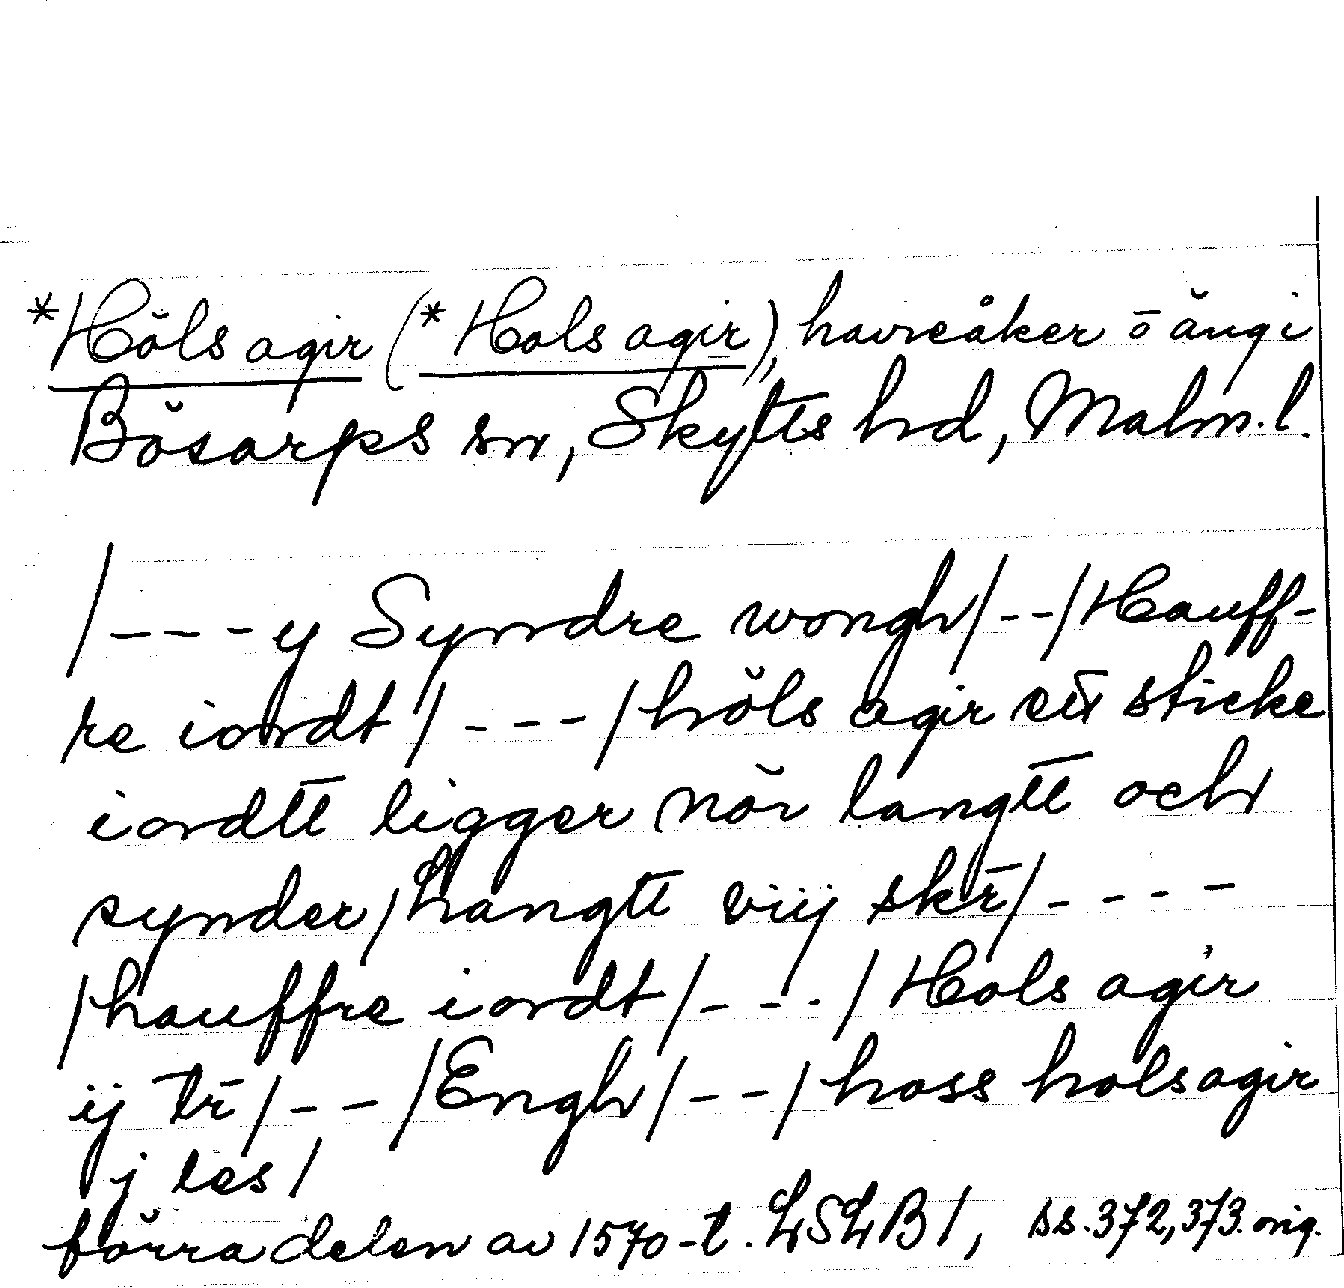 *Höls agir (*Hols agir), havreåker o äng i
Bösarps sn, Skytts hd, Malm. l.
/---y Syndre wongh/--/Hauff-
re iordt/---/höls agir ett sticke
iordtt ligger nör langtt och
synder/hangtt viij skr/----
/hauffre iordt/---/Hols agir
ij tr/--/Engh/--/hoss holsagir
j les/
förra delen av 1570-t. LSLB 1, ss. 372, 373. orig.